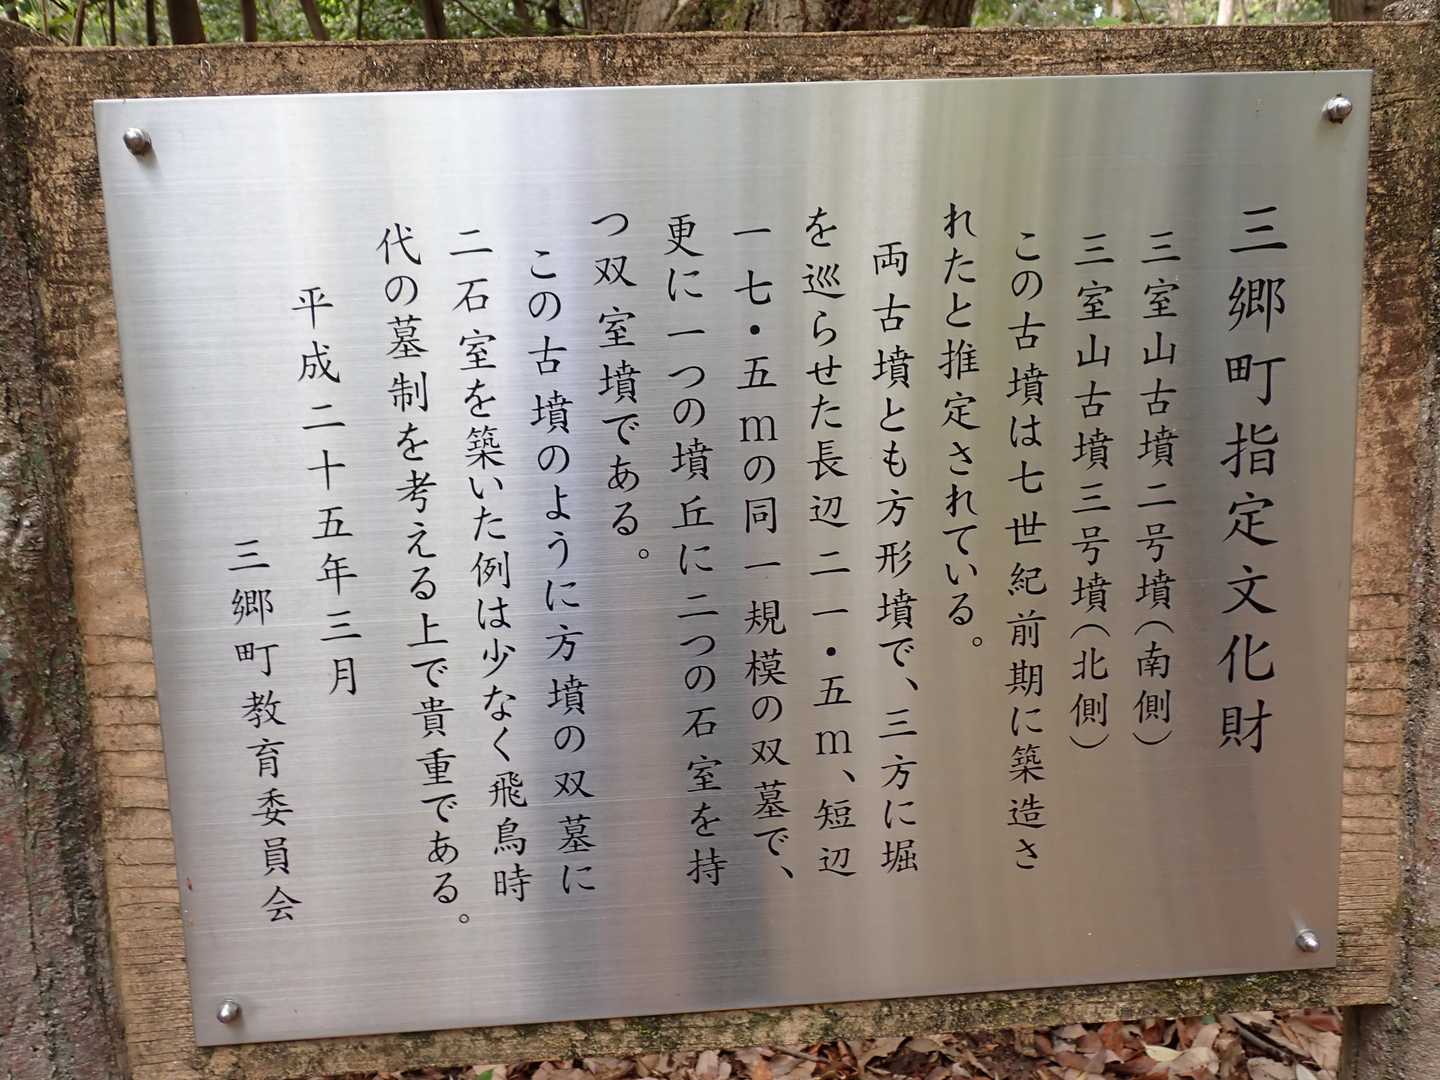 三郷町指定文化財
三室山古墳二号墳（南側）
三室山古墳三号墳（北側）
この古墳は七世紀前期に築造さ
れたと推定されている。
両古墳とも方形墳で、三方に堀
を巡らせた長辺二一・五ｍ、短辺
一七・五ｍの同一規模の双墓で、
更に一つの墳丘に二つの石室を持
つ双室墳である。
この古墳のように方墳の双墓に
二石室を築いた例は少なく飛鳥時
代の墓制を考える上で貴重である。
平成二十五年三月
三郷町教育委員会